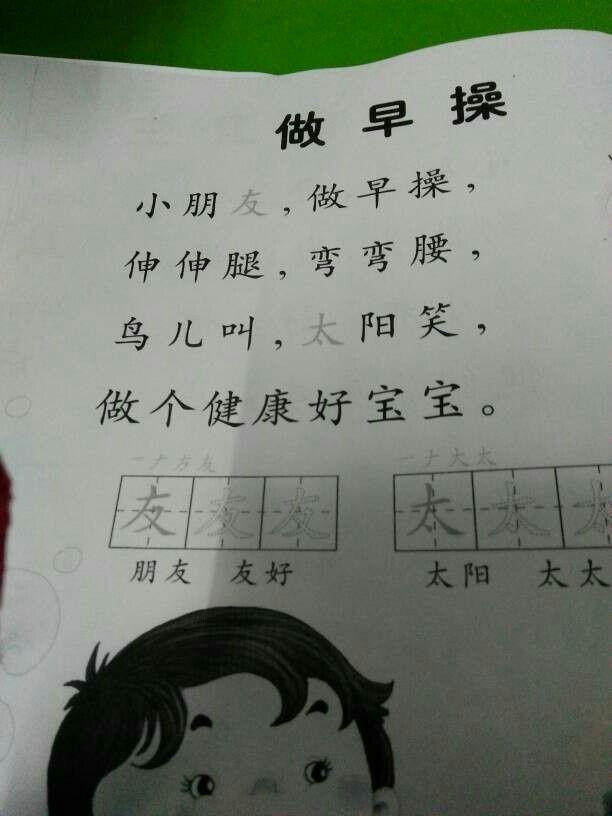 做早操
小朋友，做早操，
伸伸腿，弯弯腰，
鸟儿叫，太阳笑，
做个健康好宝宝。
一ナ方友 一ナ大太
友友友 太太太
朋友 友好 太阳 太太